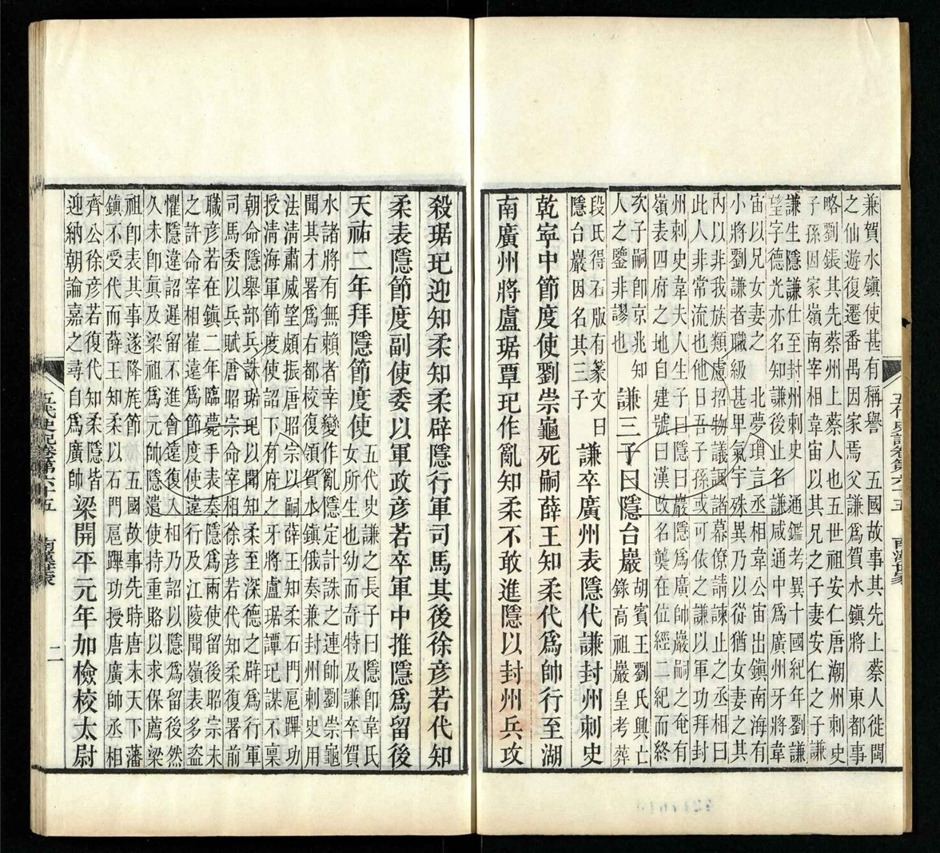 兼賀水鎮使甚有稱譽　五國故事其先上蔡人徙閩
之仙遊復遷番禺因家焉父謙爲賀水鎮將　東都事
略劉鋹其先蔡州上蔡人也五世祖安仁唐潮州刺史
子孫因家嶺南宰相韋宙以其兄之子妻安仁之子謙
謙生隱謙仕至封州刺史　通鑑考異十國紀年劉謙
望字德光亦名知謙後止名謙咸通中爲廣州牙將韋
宙以兄女妻之　北夢瑣言丞相韋公宙出鎮南海有
小將劉謙者職級甚卑氣宇殊異乃以從猶女妻之其
内以非我族類慮招物議諷諸幕僚請諫止之丞相曰
此人非常流也他日吾子孫或可依之謙以軍功拜封
州刺史韋夫人生子曰隱曰巖隱爲廣帥巖嗣之奄有
嶺表四府之地自建號曰漢改名龑在位經二紀而終
次子嗣卽京兆知
人之鑒非謬也
謙三子曰隱台巖
胡賓王劉氏興亡
錄高祖巖皇考葬
段氏得石版有篆文曰
隱台巖因名其三子
謙卒廣州表隱代謙封州刺史
乾寧中節度使劉崇龜死嗣薛王知柔代爲帥行至湖
南廣州將盧琚覃玘作亂知柔不敢進隱以封州兵攻
五代史記卷第六十五　南漢世家
殺琚玘迎知柔知柔辟隱行軍司馬其後徐彥若代知
柔表隱節度副使委以軍政彥若卒軍中推隱爲留後
天祐二年拜隱節度使
五代史謙之長子曰隱卽韋氏
女所生也幼而奇特及謙卒賀
水諸將有無賴者幸變作亂隱定計誅之連帥劉崇龜
聞其才署爲右都校復領賀水鎮俄奏兼封州刺史用
法淸肅威望頗振唐昭宗以嗣薛王知柔石門扈蹕功
授淸海軍節度使詔下有府之牙將盧琚譚玘謀不稟
朝命隱舉部兵誅琚玘以聞知柔至深德之辟爲行軍
司馬委以兵賦唐昭宗命宰相徐彥若代知柔復署前
職彥若在鎮二年臨薨手表奏隱爲兩使留後昭宗未
之許命宰相崔遠爲節度使遠行及江陵聞嶺表多盜
懼隱違詔遲留不進會遠復入相乃詔以隱爲留後然
久未卽眞及梁祖爲元帥隱遣使持重賂以求保薦梁
祖卽表其事遂降旄節　五國故事先時唐末天下藩
鎮不受代而薛王知柔以石門扈蹕功授唐廣帥丞相
齊公徐彥若復代知柔隱皆
迎納朝論嘉之尋自爲廣帥
梁開平元年加檢校太尉
五代史記卷第六十五　南漢世家　二